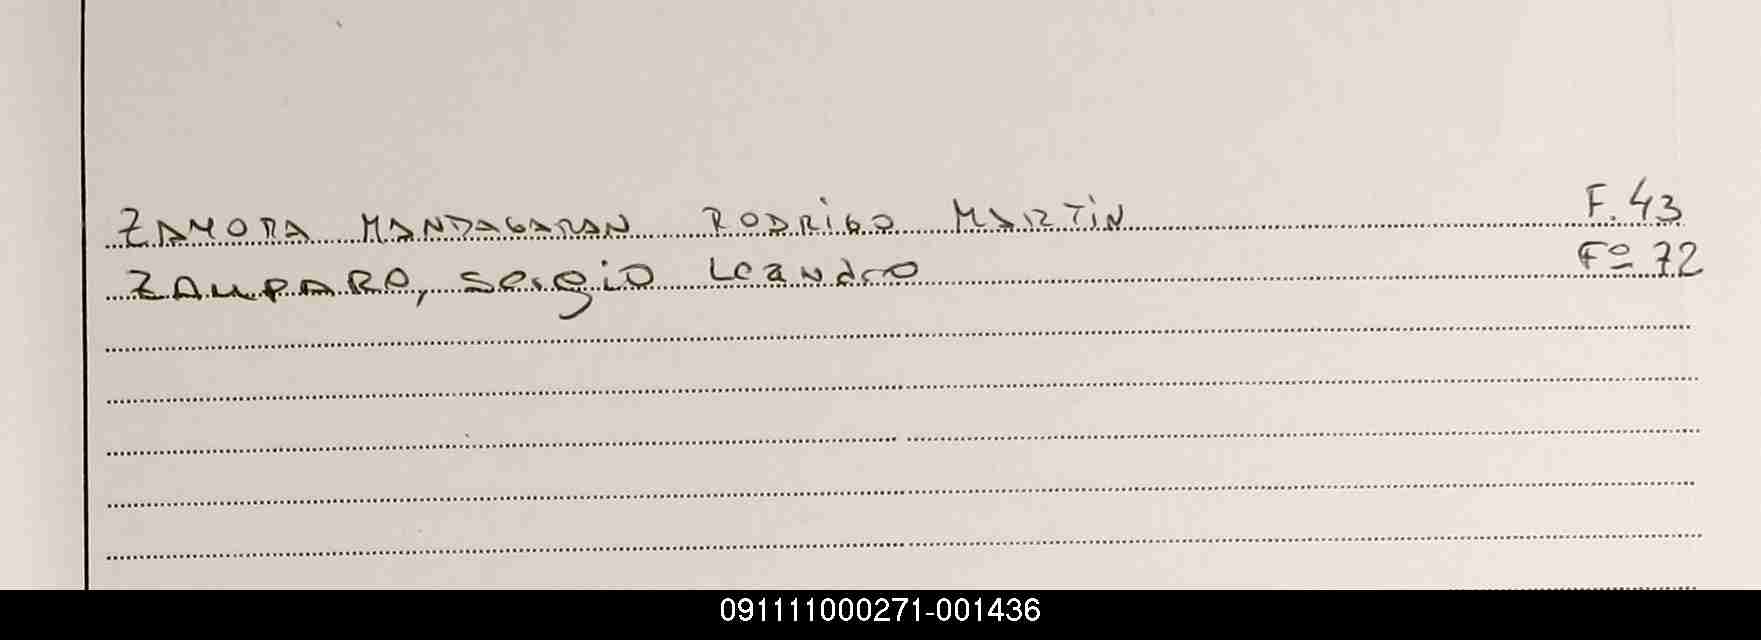 ZAMORA MANDAGARAN RODRIGO MARTIN F. 43
ZAMPARO, Sergio Leandro Fº 72
091111000271-001436